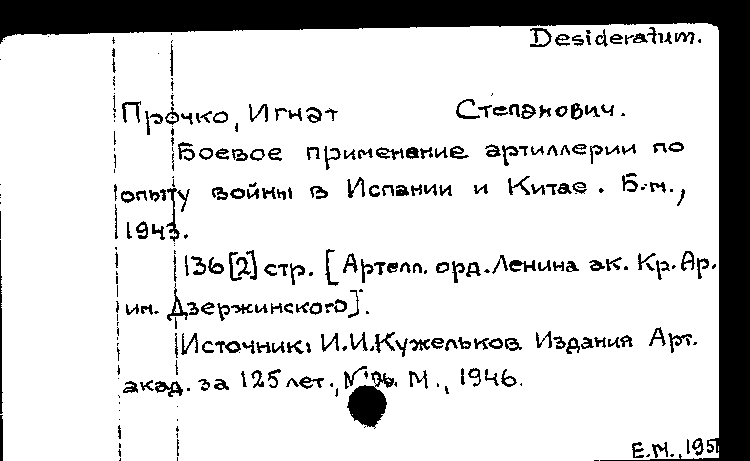 Desideratum.
Прочко, Игнат Степанович.
Боевое применение артиллерии по
опыту войны в Испании и Китае. Б.м.,
1943.
136[2] стр. [Артелл. орд. Ленина ак. Кр. Ар.
им. Дзержинского].
Источник: И.И. Кужельков. Издания Арт.
акад. за 125 лет., М., 1946.
Е.М., 195